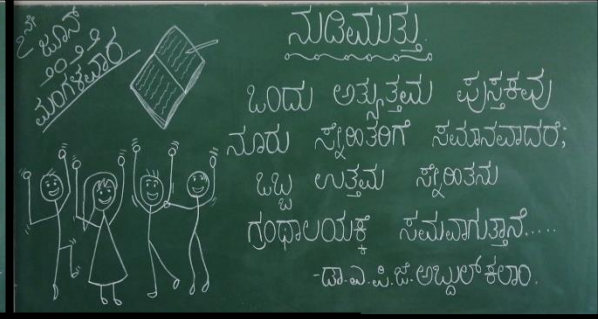 ೨ನೇ
ಜೂನ್
೨೦೨೬
ಮಂಗಳವಾರ
ನುಡಿಮುತ್ತು.
ಒಂದು ಅತ್ಯುತ್ತಮ ಪುಸ್ತಕವು
ನೂರು ಸ್ನೇಹಿತರಿಗೆ ಸಮಾನವಾದರೆ;
ಒಬ್ಬ ಉತ್ತಮ ಸ್ನೇಹಿತನು
ಗ್ರಂಥಾಲಯಕ್ಕೆ ಸಮವಾಗುತ್ತಾನೆ.....
-ಡಾ.ಎ.ಪಿ.ಜೆ.ಅಬ್ದುಲ್ ಕಲಾಂ.